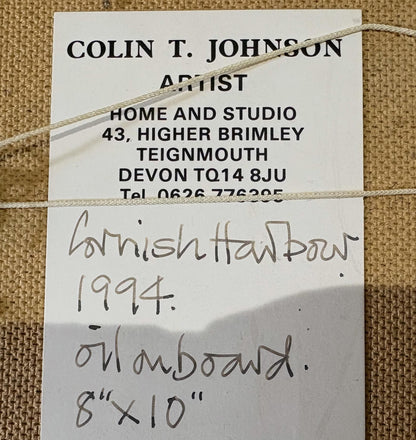 COLIN T. JOHNSON
ARTIST
HOME AND STUDIO
43, HIGHER BRIMLEY
TEIGNMOUTH
DEVON TQ14 8JU
Tel. 0626 776395
Cornish Harbour
1994.
oil on board.
8" x 10"